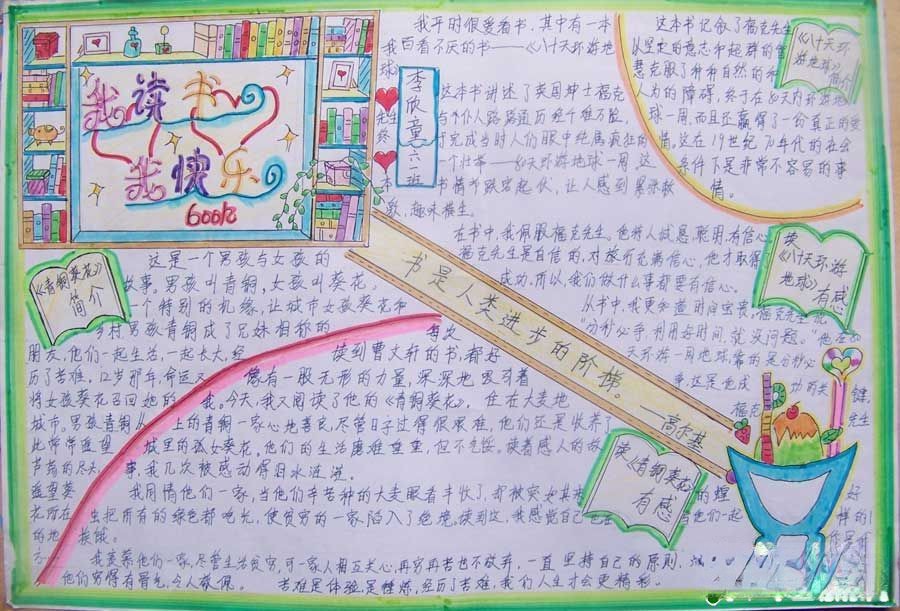 我读书
我快乐
600亿
李欣童 六 班
我平时很爱看书，其中有一本
我百看不厌的书——《八十天环游地
球》
这本书讲述了英国绅士福克
先生与个仆人路路通历经千难万险，
终于完成当时人们眼中纯属疯狂的
一个壮举——80天环游地球一周，这
本书情节跌宕起伏，让人感到
趣味横生。
《八十天环游地球》简介
这本书记叙了福克先生
以坚定的意志和超群的智
慧克服了种种自然的和
人为的障碍，终于在80天内环游地
球一周，而且还赢得了一份真正的爱
情，这在19世纪70年代的社会
条件下是非常不容易的事
情。
读《八十天环游地球》有感
在书中，我佩服福克先生。他待人诚恳，聪明，有信心
福克先生是自信的，对旅行充满信心，他才取得了
成功，所以，我们做什么事都要有信心。
从书中，我更知道时间宝贵，福克先生说
分秒必争，利用好时间，就没问题。
天环游一周地球，靠的是分秒必
争，这是他成功的关键，
福克先生
书是人类进步的阶梯。——高尔基
《青铜葵花》简介
这是一个男孩与女孩的
故事。男孩叫青铜，女孩叫葵花，
一个特别的机缘，让城市女孩葵花和
乡村男孩青铜成了兄妹相称的
朋友，他们一起生活，一起长大，经
历了苦难，12岁那年，命运又
将女孩葵花召回她的
城市。男孩青铜从
此常常遥望
芦荡的尽头，
遥望葵
花所在
的地
方
读《青铜葵花》有感
每次
读到曹文轩的书，都好
像有一股无形的力量，深深地吸引着
我。今天，我又阅读了他的《青铜葵花》，住在大麦地
上的青铜一家心地善良，尽管日子过得很艰难，他们还是收养了
城里的孤女葵花。他们的生活磨难重重，但不气馁。读着感人的故
事，我几次被感动得泪水涟涟。
我同情他们一家，当他们辛苦种的大麦眼看丰收了，却被突如其来的蝗
虫把所有的绿色都吃光，使贫穷的一家陷入了绝境。读到这，我感觉自己也在与他们一起
挨饿。
我羡慕他们一家，尽管生活贫穷，可一家人相互关心，再穷再苦也不放弃，一直坚持自己的原则，
他们穷得有骨气，令人敬佩。
苦难是体验，是锤炼，经历了苦难，我们人生才会更精彩。